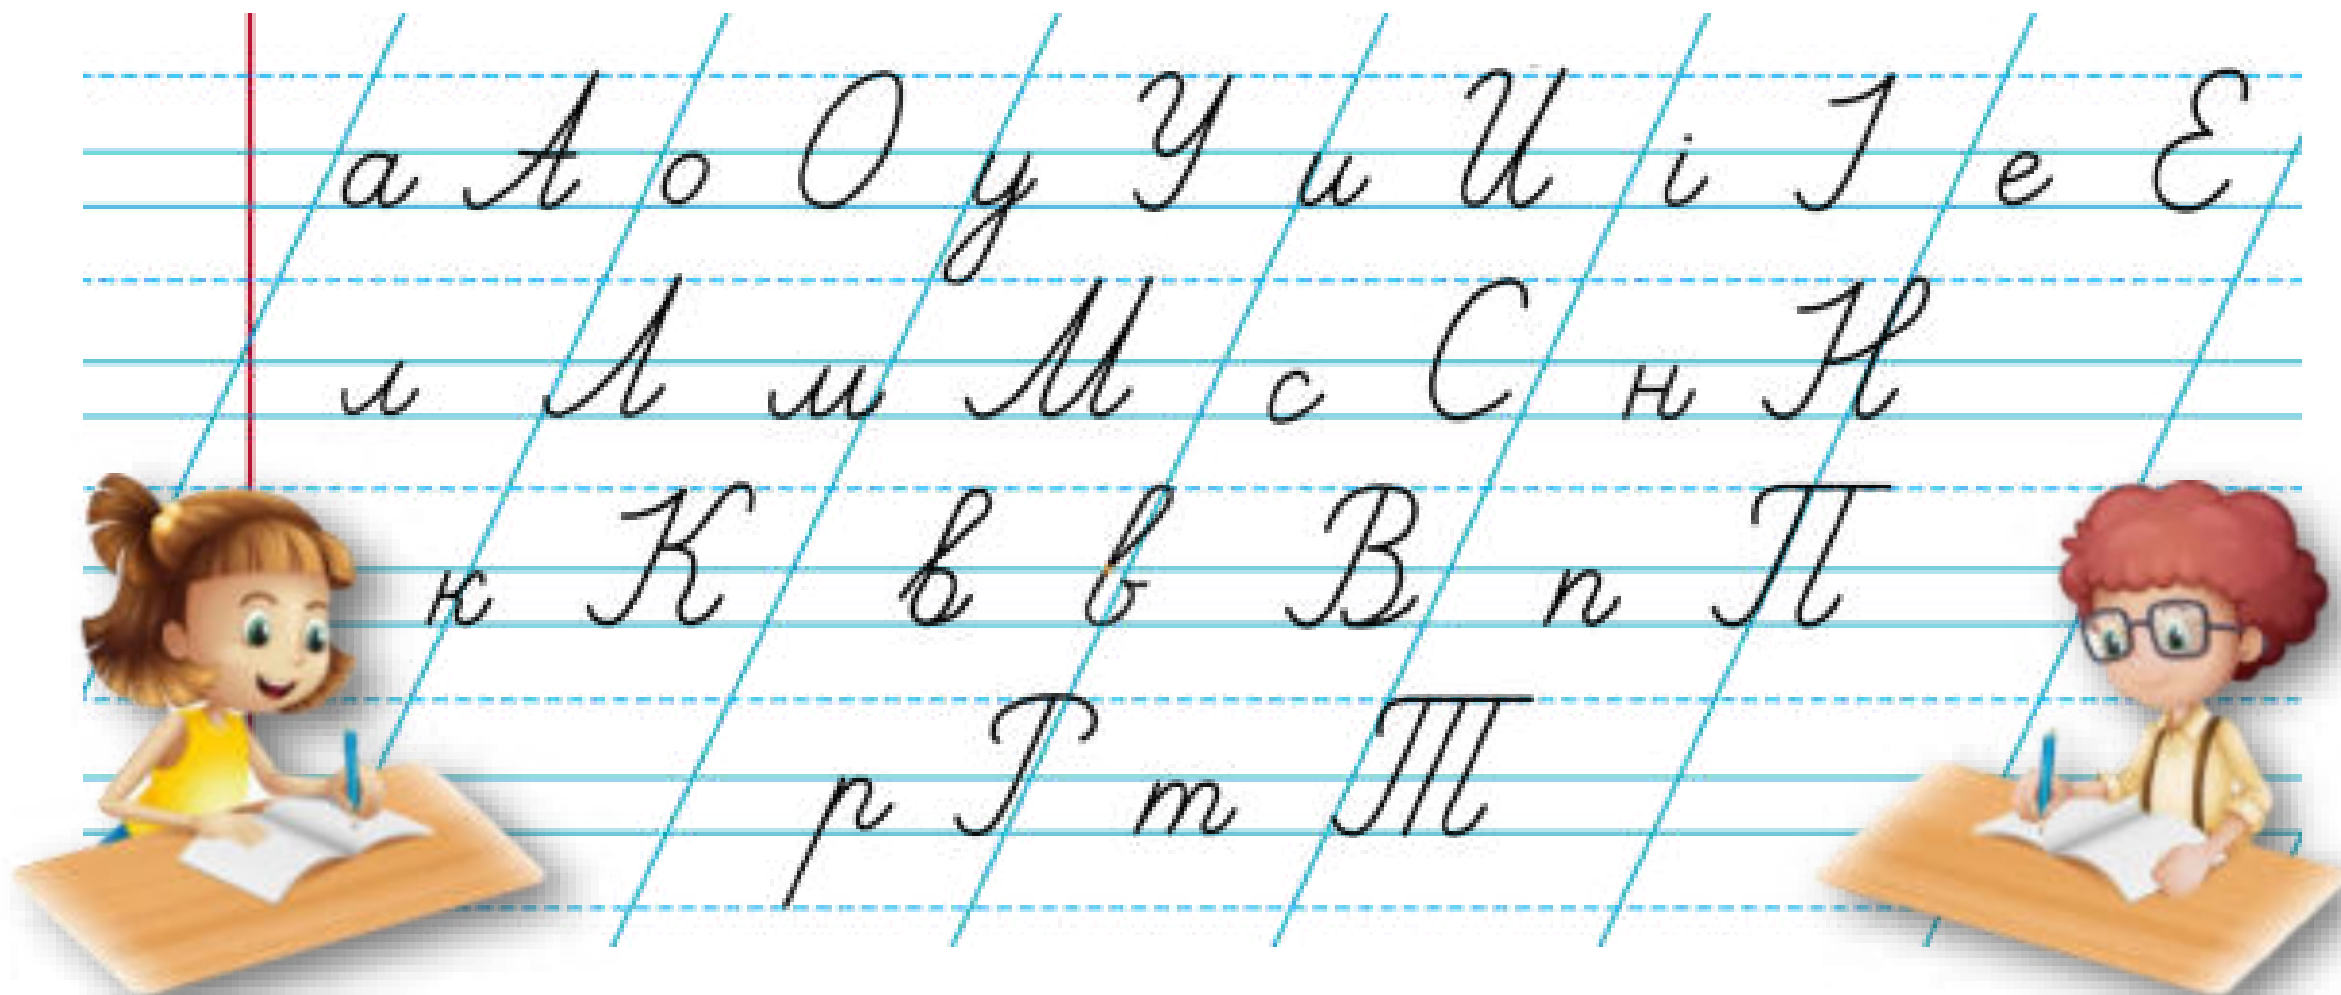 а А о О у У и И і І е Е
л Л м М с С н Н
к К в в В п П
р Р т Т